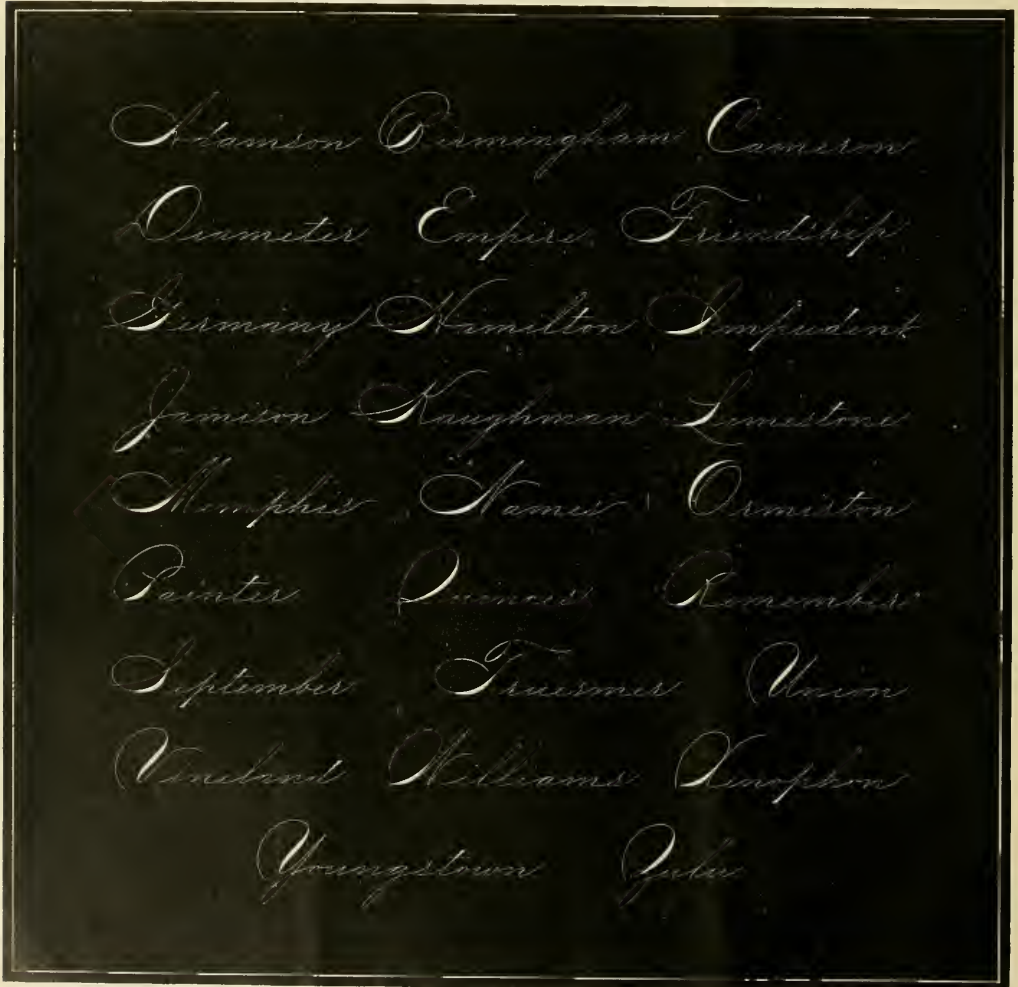 Adamson Birmingham Cameron
Diameter Empire Friendship
Germany Hamilton Impudent
Jamison Kaughman Limestone
Memphis Names Ormiston
Painter Remember
September Union
Vineland Williams Xenophon
Youngstown Zulu